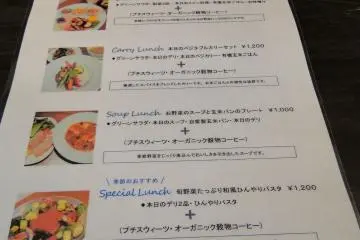 (プチスウィーツ・オーガニック穀物コーヒー)
Curry Lunch 本日のベジタブルカリーセット ¥1,200
+
(プチスウィーツ・オーガニック穀物コーヒー)
Soup Lunch 旬野菜のスープと玄米パンのプレート ¥1,000
◆グリーンサラダ・本日のスープ・自家製玄米パン・本日のデリ
+
(プチスウィーツ・オーガニック穀物コーヒー)
季節のおすすめ
Special Lunch 旬野菜たっぷり和風ひんやりパスタ ¥1,200
◆本日のデリ2品・ひんやりパスタ
+
(プチスウィーツ・オーガニック穀物コーヒー)